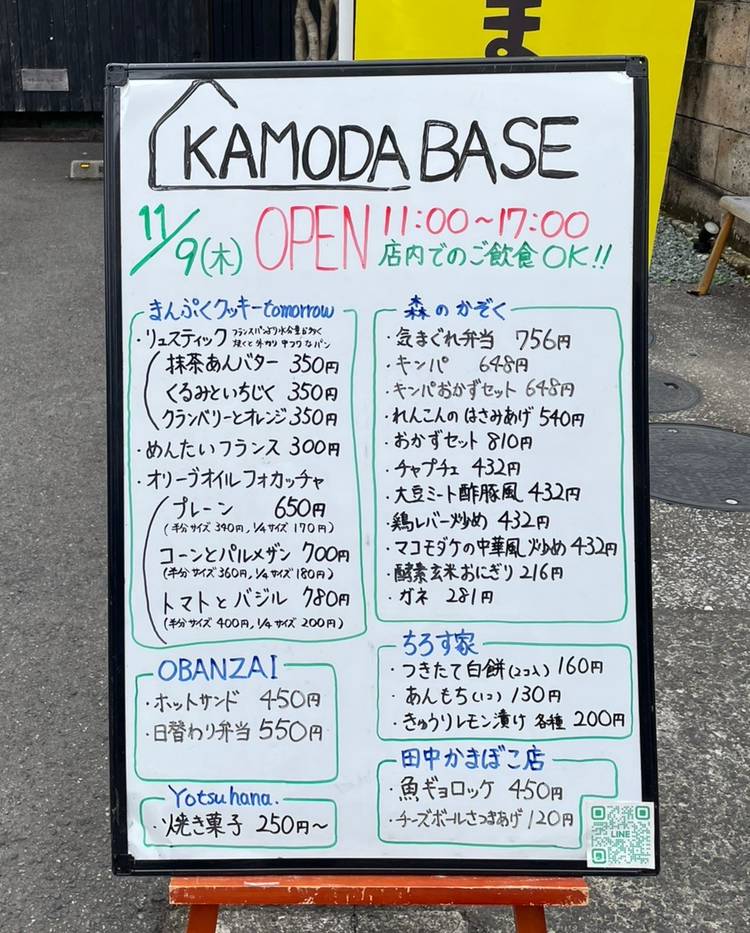 ま
KAMODA BASE
11/9(木) OPEN 11:00~17:00
店内でのご飲食OK!!
まんぷくクッキーtomorrow
・リュスティック フランスパンより水分量が多く
焼くと外カリ中フワなパン
抹茶あんバター 350円
くるみといちじく 350円
クランベリーとオレンジ 350円
・めんたいフランス 300円
・オリーブオイルフォカッチャ
プレーン 650円
(半分サイズ 340円, 1/4サイズ 170円)
コーンとパルメザン 700円
(半分サイズ 360円, 1/4サイズ 180円)
トマトとバジル 780円
(半分サイズ 400円, 1/4サイズ 200円)
OBANZAI
・ホットサンド 450円
・日替わり弁当 550円
Yotsuhana.
・焼き菓子 250円~
森のかぞく
・気まぐれ弁当 756円
・キンパ 648円
・キンパおかずセット 648円
・れんこんのはさみあげ 540円
・おかずセット 810円
・チャプチェ 432円
・大豆ミート酢豚風 432円
・鶏レバー炒め 432円
・マコモダケの中華風炒め 432円
・酵素玄米おにぎり 216円
・ガネ 281円
ちろす家
・つきたて白餅(2コ入) 160円
・あんもち(1コ) 130円
・きゅうりレモン漬け 各種 200円
田中かまぼこ店
・魚ギョロッケ 450円
・チーズボールさつまあげ 120円
LINE